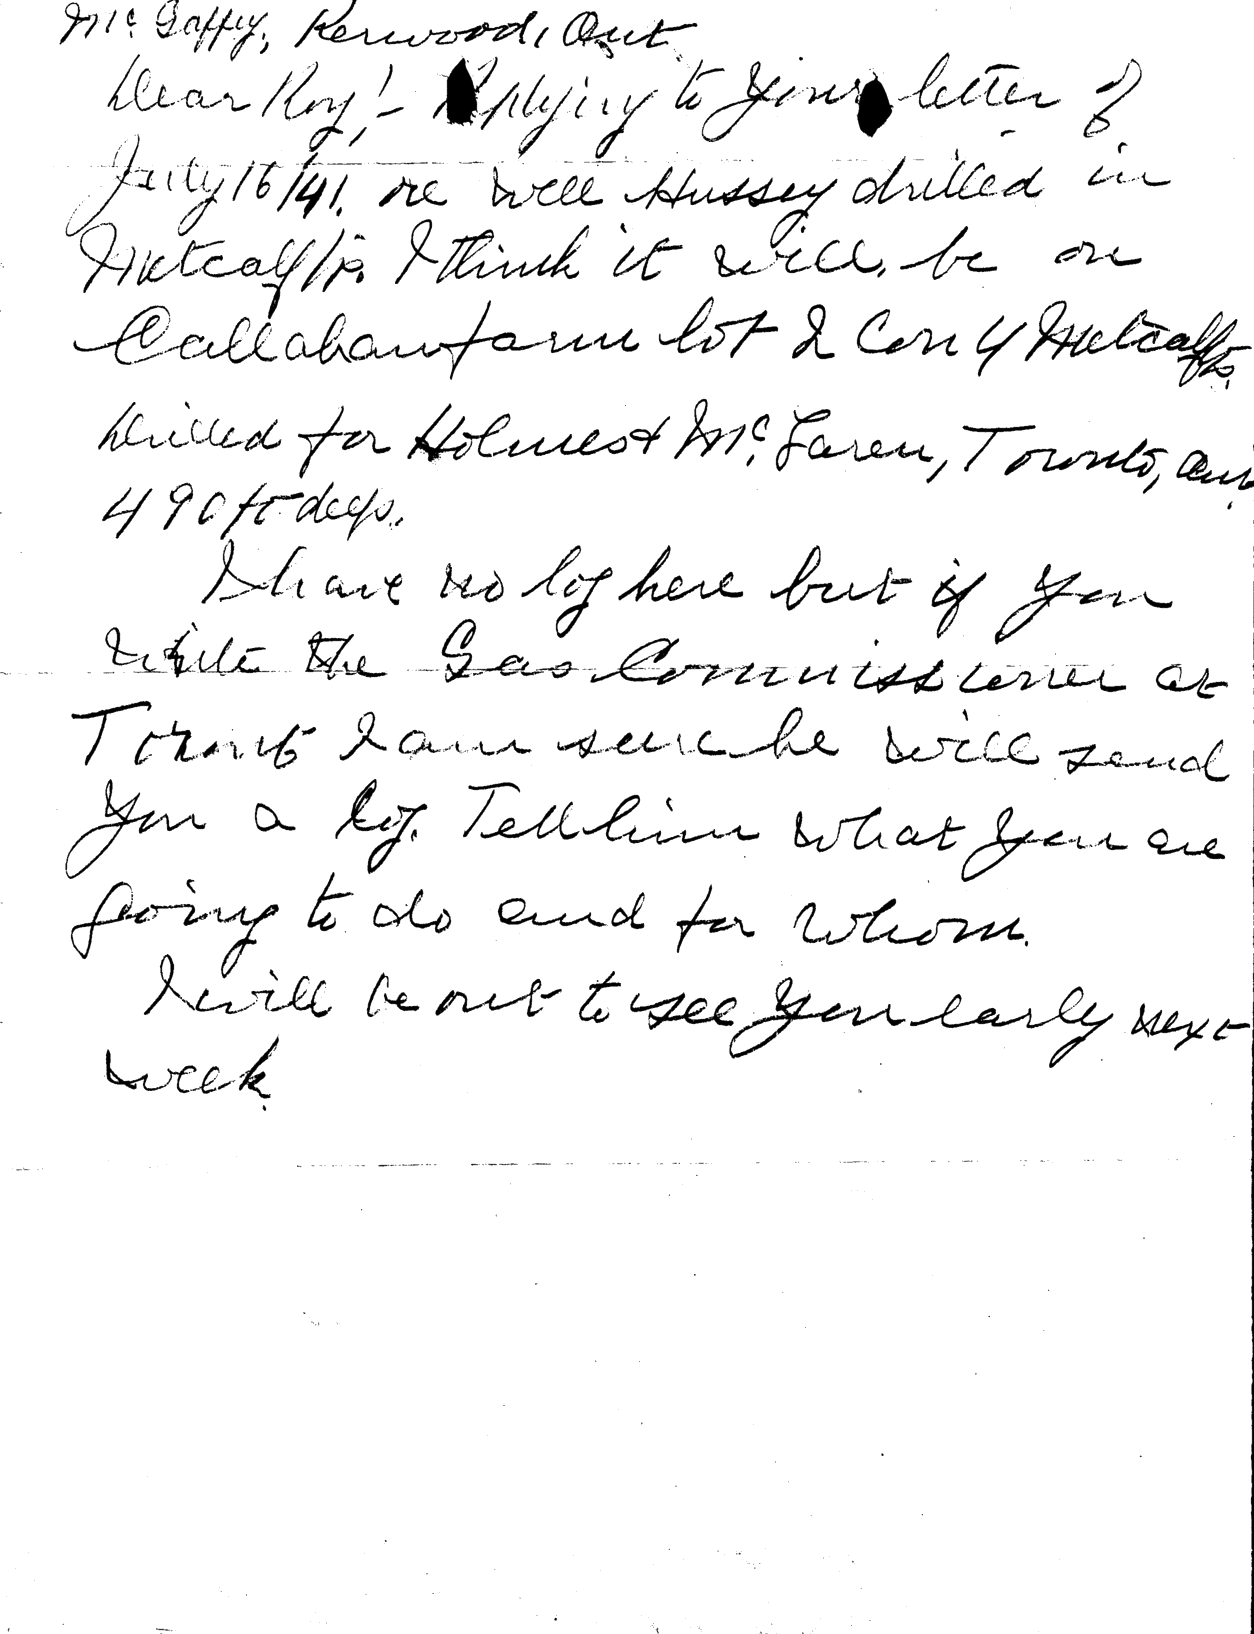 Mc. Gaffey, Kerwood, Ont.
Dear Roy:- Replying to your letter of
July 16/41. re well Hussey drilled in
Metcalf Tp. I think it will be on
Callahan farm lot 2 Con 4 Metcalf Tp.
Drilled for Holmes & Mc.Laren, Toronto, Ont.
490 ft deep.
I have no log here but if you
write the Gas Commissioner at
Toronto I am sure he will send
you a log. Tell him what you are
going to do and for whom.
I will be out to see you early next
week.